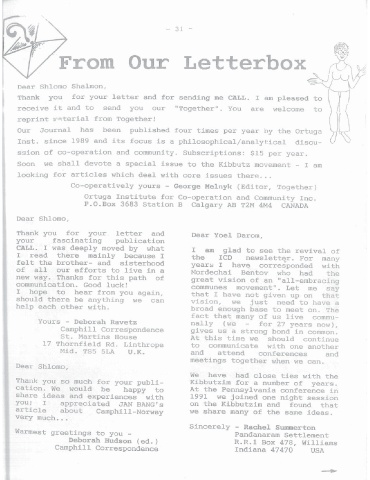 - 31 -
From Our Letterbox
Dear Shlomo Shalmon,
Thank you for your letter and for sending me CALL. I am pleased to
receive it and to send you our "Together". You are welcome to
reprint material from Together!
Our Journal has been published four times per year by the Ortugs
Inst. since 1989 and its focus is a philosophical/analytical discu-
ssion of co-operation and community. Subscriptions: $15 per year.
Soon we shall devote a special issue to the Kibbutz movement - I am
looking for articles which deal with core issues there...
Co-operatively yours - George Melnyk (Editor, Together)
Ortugs Institute for Co-operation and Community Inc.
P.O.Box 3683 Station B Calgary AB T2M 4M4 CANADA
Dear Shlomo,
Thank you for your letter and
your fascinating publication
CALL. I was deeply moved by what
I read there mainly because I
felt the brother- and sisterhood
of all our efforts to live in a
new way. Thanks for this path of
communication. Good luck!
I hope to hear from you again,
should there be anything we can
help each other with.
Yours - Deborah Ravetz
Camphill Correspondence
St. Martins House
17 Thornfield Rd. Linthrope
Mid. TS5 5LA U.K.
Dear Shlomo,
Thank you so much for your publi-
cation. We would be happy to
share ideas and experiences with
you; I appreciated JAN BANG's
article about Camphill-Norway
very much...
Warmest greetings to you -
Deborah Hudson (ed.)
Camphill Correspondence
Dear Yoel Darom,
I am glad to see the revival of
the ICD newsletter. For many
years I have corresponded with
Mordechai Bentov who had the
great vision of an "all-embracing
communes movement". Let me say
that I have not given up on that
vision, we just need to have a
broad enough base to meet on. The
fact that many of us live commu-
nally (we - for 27 years now),
gives us a strong bond in common.
At this time we should continue
to communicate with one another
and attend conferences and
meetings together when we can.
We have had close ties with the
Kibbutzim for a number of years.
At the Pennsylvania conference in
1991 we joined one night session
on the Kibbutzim and found that
we share many of the same ideas.
Sincerely - Rachel Summerton
Pandanaram Settlement
R.R.1 Box 478, Williams
Indiana 47470 USA